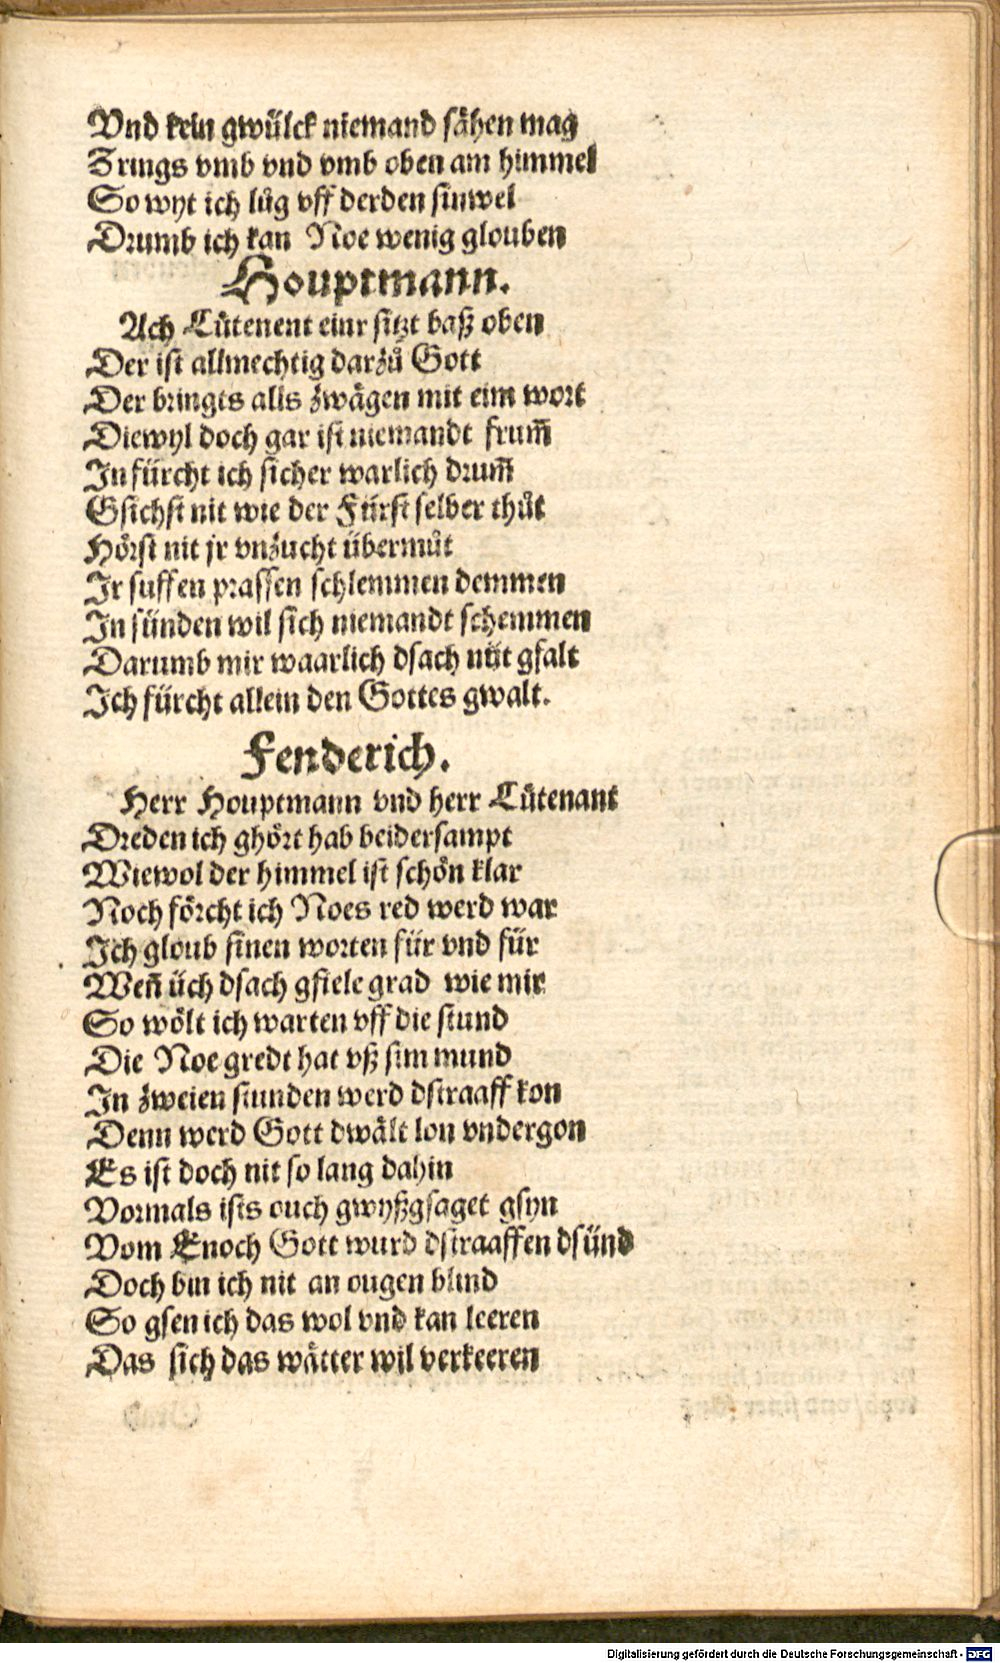 Vnd kein gwülck niemand sähen mag
Zrings vmb vnd vmb oben am himmel
So wyt ich lůg vff derden sinwel
Drumb ich kan Noe wenig glouben
Houptmann.
Ach Lütenent einr sitzt baß oben
Der ist allmechtig darzů Gott
Der bringts alls zwägen mit eim wort
Diewyl doch gar ist niemandt frum̃
In fürcht ich sicher warlich drum̃
Gsichst nit wie der Fürst selber thůt
Hörst nit jr vnzucht übermůt
Ir suffen prassen schlemmen demmen
In sünden wil sich niemandt schemmen
Darumb mir waarlich dsach nüt gfalt
Ich fürcht allein den Gottes gwalt.
Fenderich.
Herr Houptmann vnd herr Lütenant
Dreden ich ghört hab beidersampt
Wiewol der himmel ist schön klar
Noch förcht ich Noes red werd war
Ich gloub sinen worten für vnd für
Weñ üch dsach gfiele grad wie mir
So wölt ich warten vff die stund
Die Noe gredt hat vß sim mund
In zweien stunden werd dstraaff kon
Denn werd Gott dwält lon vndergon
Es ist doch nit so lang dahin
Vormals ists ouch gwyßgsaget gsyn
Vom Enoch Gott wurd dstraaffen dsünd
Doch bin ich nit an ougen blind
So gsen ich das wol vnd kan leeren
Das sich das wätter wil verkeeren
Digitalisierung gefördert durch die Deutsche Forschungsgemeinschaft - DFG